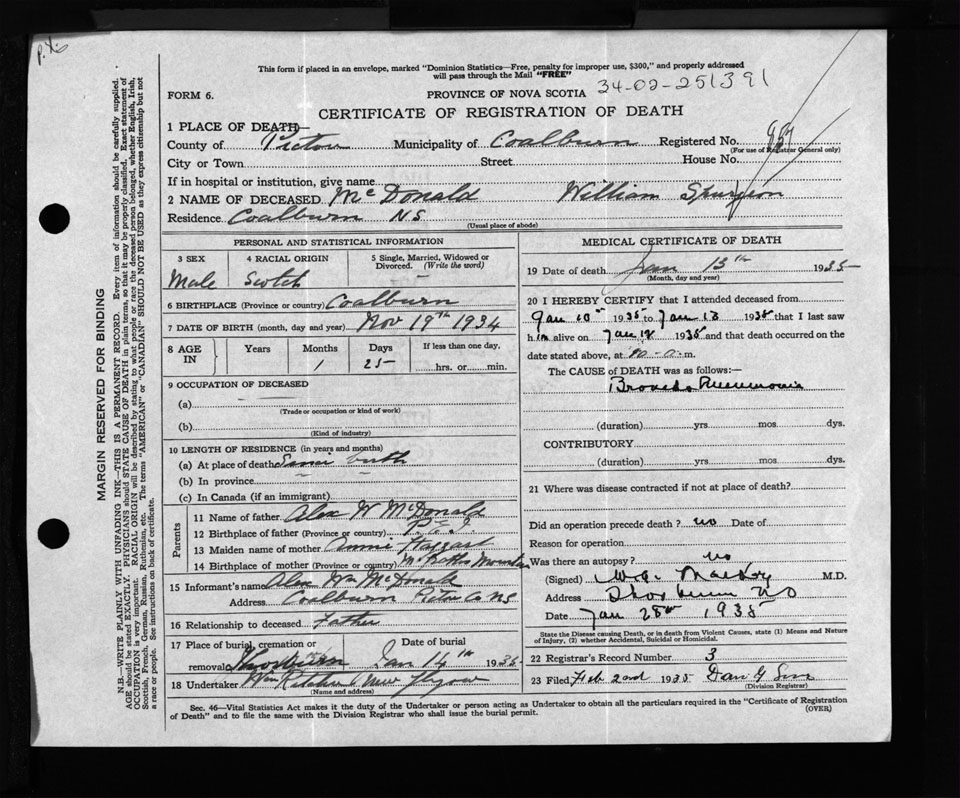 P.X.
This form if placed in an envelope, marked "Dominion Statistics—Free, penalty for improper use, $300," and properly addressed
will pass through the Mail "FREE"
34-02-251391
FORM 6.
PROVINCE OF NOVA SCOTIA
CERTIFICATE OF REGISTRATION OF DEATH
1 PLACE OF DEATH—
County of Pictou Municipality of Coalburn Registered No. 957
(For use of Registrar General only)
City or Town Street House No.
If in hospital or institution, give name
2 NAME OF DECEASED McDonald William Spurgeon
Residence Coalburn NS
(Usual place of abode)
PERSONAL AND STATISTICAL INFORMATION
3 SEX 4 RACIAL ORIGIN 5 Single, Married, Widowed or
Divorced. (Write the word)
Male Scotch —
6 BIRTHPLACE (Province or country) Coalburn
7 DATE OF BIRTH (month, day and year) Nov 19th 1934
8 AGE IN Years Months Days If less than one day,
1 25 hrs. or min.
9 OCCUPATION OF DECEASED
(a)
(Trade or occupation or kind of work)
(b)
(Kind of industry)
10 LENGTH OF RESIDENCE (in years and months)
(a) At place of death Since birth
(b) In province
(c) In Canada (if an immigrant)
Parents
11 Name of father Alex W McDonald
12 Birthplace of father (Province or country) P.E.I
13 Maiden name of mother Annie Haggart
14 Birthplace of mother (Province or country) McBeths Mountain
15 Informant's name Alex Wm McDonald
Address Coalburn Pictou Co NS
16 Relationship to deceased Father
17 Place of burial, cremation or Date of burial
removal Thorburn Jan 14th 1935
18 Undertaker Wm Ritchie New Glasgow
(Name and address)
MEDICAL CERTIFICATE OF DEATH
19 Date of death Jan 13th 1935
(Month, day and year)
20 I HEREBY CERTIFY that I attended deceased from
Jan 10th 1935 to Jan 12 1935 that I last saw
him alive on Jan 12 1935 and that death occurred on the
date stated above, at m.
The CAUSE of DEATH was as follows:
Broncho Pneumonia
(duration) yrs mos dys.
CONTRIBUTORY
(duration) yrs mos dys.
21 Where was disease contracted if not at place of death?
Did an operation precede death? no Date of
Reason for operation
Was there an autopsy? no
(Signed) M.D.
Address Thorburn NS
Date Jan 28th 1935
State the Disease causing Death, or in death from Violent Causes, state (1) Means and Nature
of Injury, (2) whether Accidental, Suicidal or Homicidal.
22 Registrar's Record Number 3
23 Filed Feb 2nd 1935 Dan G
(Division Registrar)
Sec. 46—Vital Statistics Act makes it the duty of the Undertaker or person acting as Undertaker to obtain all the particulars required in the "Certificate of Registration
of Death" and to file the same with the Division Registrar who shall issue the burial permit.
(OVER)
MARGIN RESERVED FOR BINDING
N.B.—WRITE PLAINLY WITH UNFADING INK—THIS IS A PERMANENT RECORD. Every item of information should be carefully supplied.
AGE should be stated EXACTLY. PHYSICIANS should STATE CAUSE OF DEATH in plain terms, so that it may be properly classified. Exact statement of
OCCUPATION is very important. RACIAL ORIGIN will be described by stating to what people or race the deceased person belonged, whether English, Irish,
Scottish, French, German, Russian, Ruthenian, etc. The terms "AMERICAN" or "CANADIAN" SHOULD NOT BE USED as they express citizenship but not
a race or people. See instructions on back of certificate.